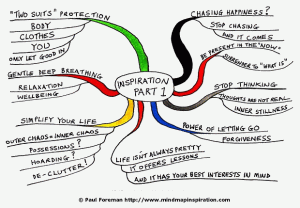 "TWO SUITS" PROTECTION
BODY
CLOTHES
YOU
ONLY LET GOOD IN
GENTLE DEEP BREATHING
RELAXATION
WELLBEING
SIMPLIFY YOUR LIFE
OUTER CHAOS = INNER CHAOS
POSSESSIONS?
HOARDING?
DE-CLUTTER!
INSPIRATION
PART 1
CHASING HAPPINESS?
STOP CHASING
AND IT COMES
BE PRESENT IN THE "NOW"
SURRENDER TO "WHAT IS"
STOP THINKING
THOUGHTS ARE NOT REAL...
INNER STILLNESS
POWER OF LETTING GO
FORGIVENESS
LIFE ISN'T ALWAYS PRETTY
IT OFFERS LESSONS
AND IT HAS YOUR BEST INTERESTS IN MIND
© Paul Foreman http://www.mindmapinspiration.com